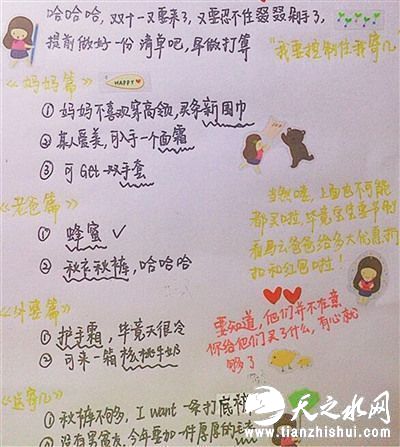 哈哈哈,双十一又要来了,又要忍不住剁剁剁手了,
提前做好一份清单吧,早做打算
"我要控制住我寄几"
《妈妈篇》
HAPPY
① 妈妈不喜欢穿高领,买条新围巾
② 真人爱美,可入手一个面霜
③ 可Get一双手套
《老爸篇》
① 蜂蜜 ✓
② 秋衣秋裤,哈哈哈
当然喽,上面也不可能
都买啦,毕竟学生要节制
看马云爸爸给多大优惠折
扣和红包啦!
《外婆篇》
① 护手霜,毕竟天很冷
② 可来一箱核桃牛奶
要知道,他们并不在意
你给他们买了什么,有心就
够了
寄几》
① 秋裤不够,I want 一条打底
② 没有男朋友,今年要加一件厚厚的
天之水网
www.tianzhishui.com